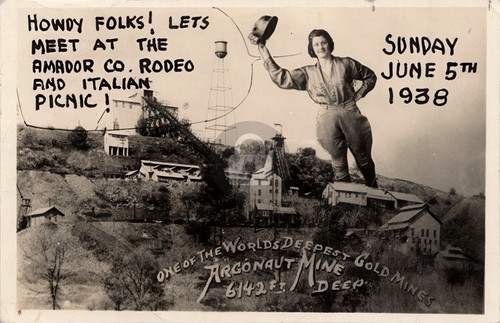 HOWDY FOLKS! LETS
MEET AT THE
AMADOR CO. RODEO
AND ITALIAN
PICNIC!
SUNDAY
JUNE 5TH
1938
ONE OF THE WORLDS DEEPEST GOLD MINES
ARGONAUT MINE
6142 FT DEEP